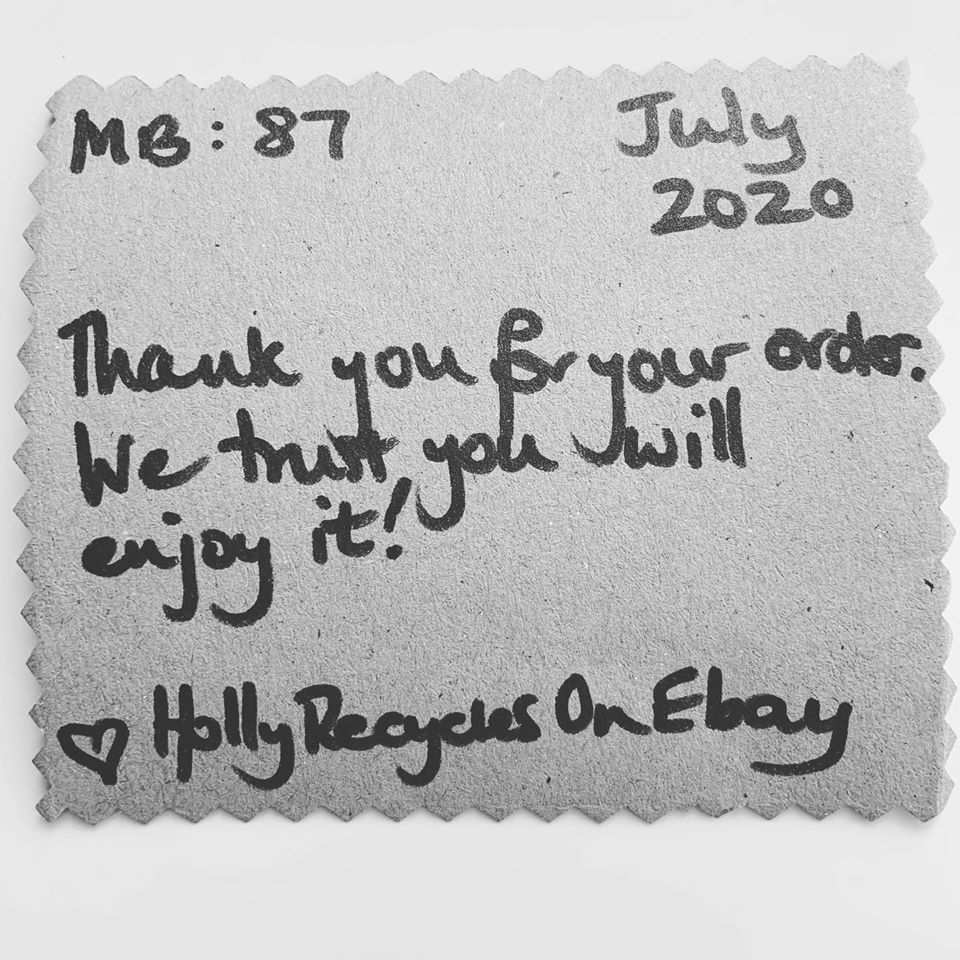 MB: 87
July
2020
Thank you for your order.
We trust you will
enjoy it!
♡ HollyRecycles On Ebay